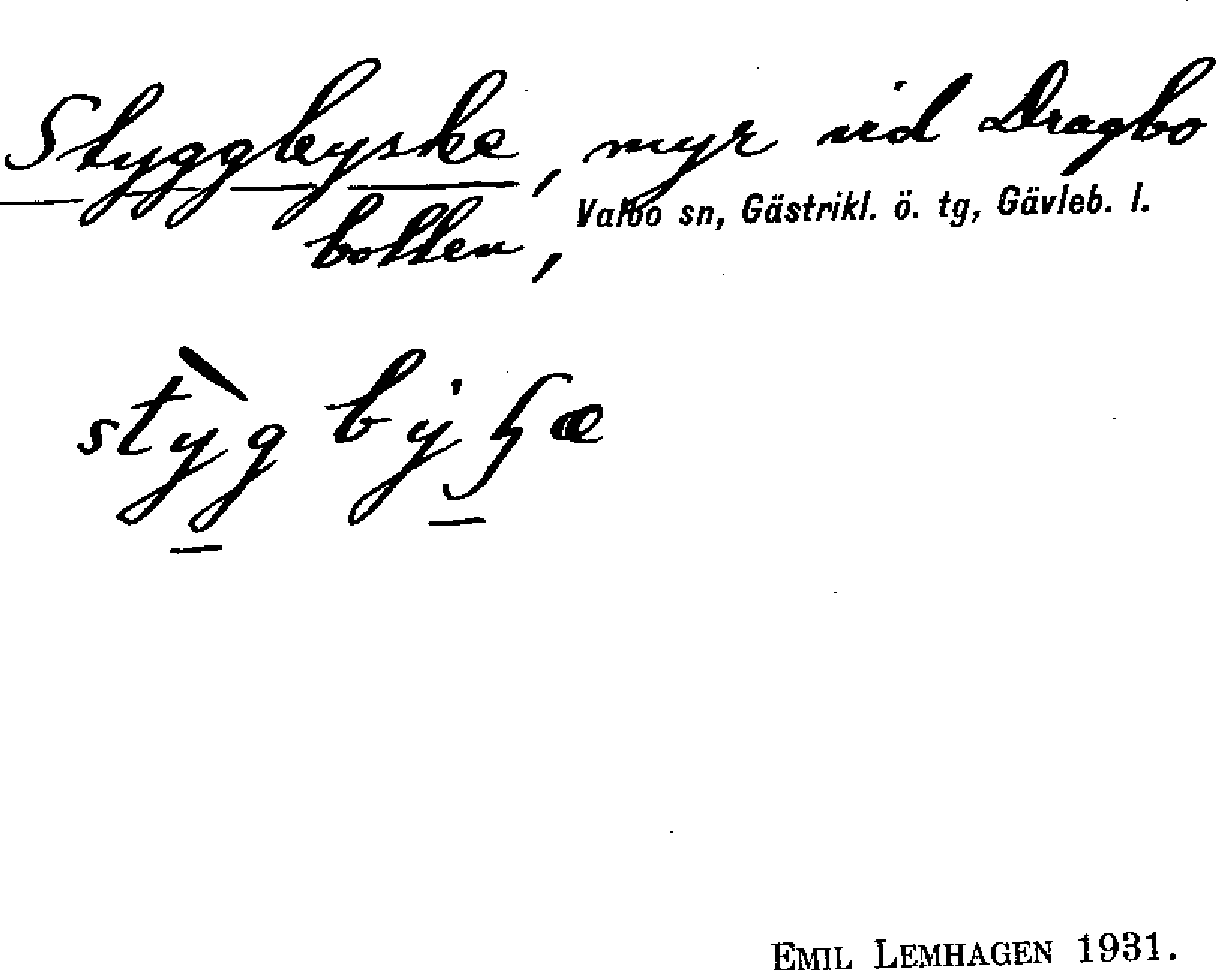 Styggbyske, myr vid Dragbo
botten,
Valbo sn, Gästrikl. ö. tg, Gävleb. l.
EMIL LEMHAGEN 1931.